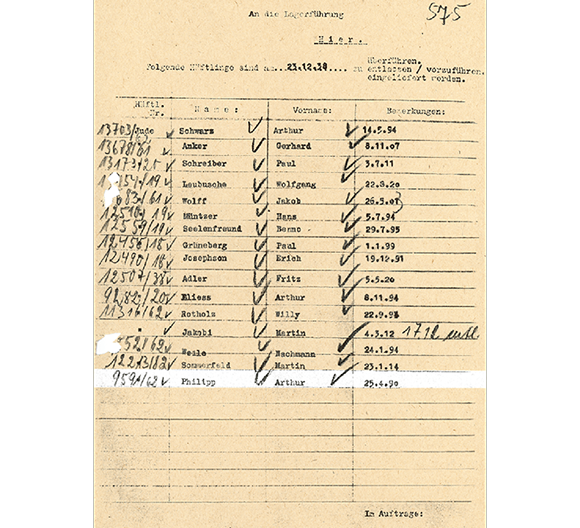 An die Lagerführung 575
Hier.
Folgende Häftlinge sind am 21.12.38 zu
überführen.
entlassen / vorzuführen.
eingeliefert worden.
Häftl. Nr. Name: Vorname: Bemerkungen:
13703/Jude Schwarz Arthur 14.5.94
13678/61 Amker Gerhard 8.11.07
13173/25 Schreiber Paul 3.7.11
/19 Laubusche Wolfgang 22.8.20
83/61 Wolff Jakob 26.5.07
12518/19 Müntzer Hans 5.7.94
12559/19 Seelenfreund Benno 29.7.95
12456/18 Grüneberg Paul 1.1.99
12490/18 Josephson Erich 19.12.91
12507/38 Adler Fritz 5.5.20
9282/20 Eliess Arthur 8.11.94
11316/62 Rotholz Willy 22.9.98
Jakobi Martin 4.3.12 17.12. entl.
52/62 Weile Nachmann 24.1.94
12273/82 Sommerfeld Martin 23.1.14
9594/62 Philipp Arthur 25.4.90
Im Auftrage: